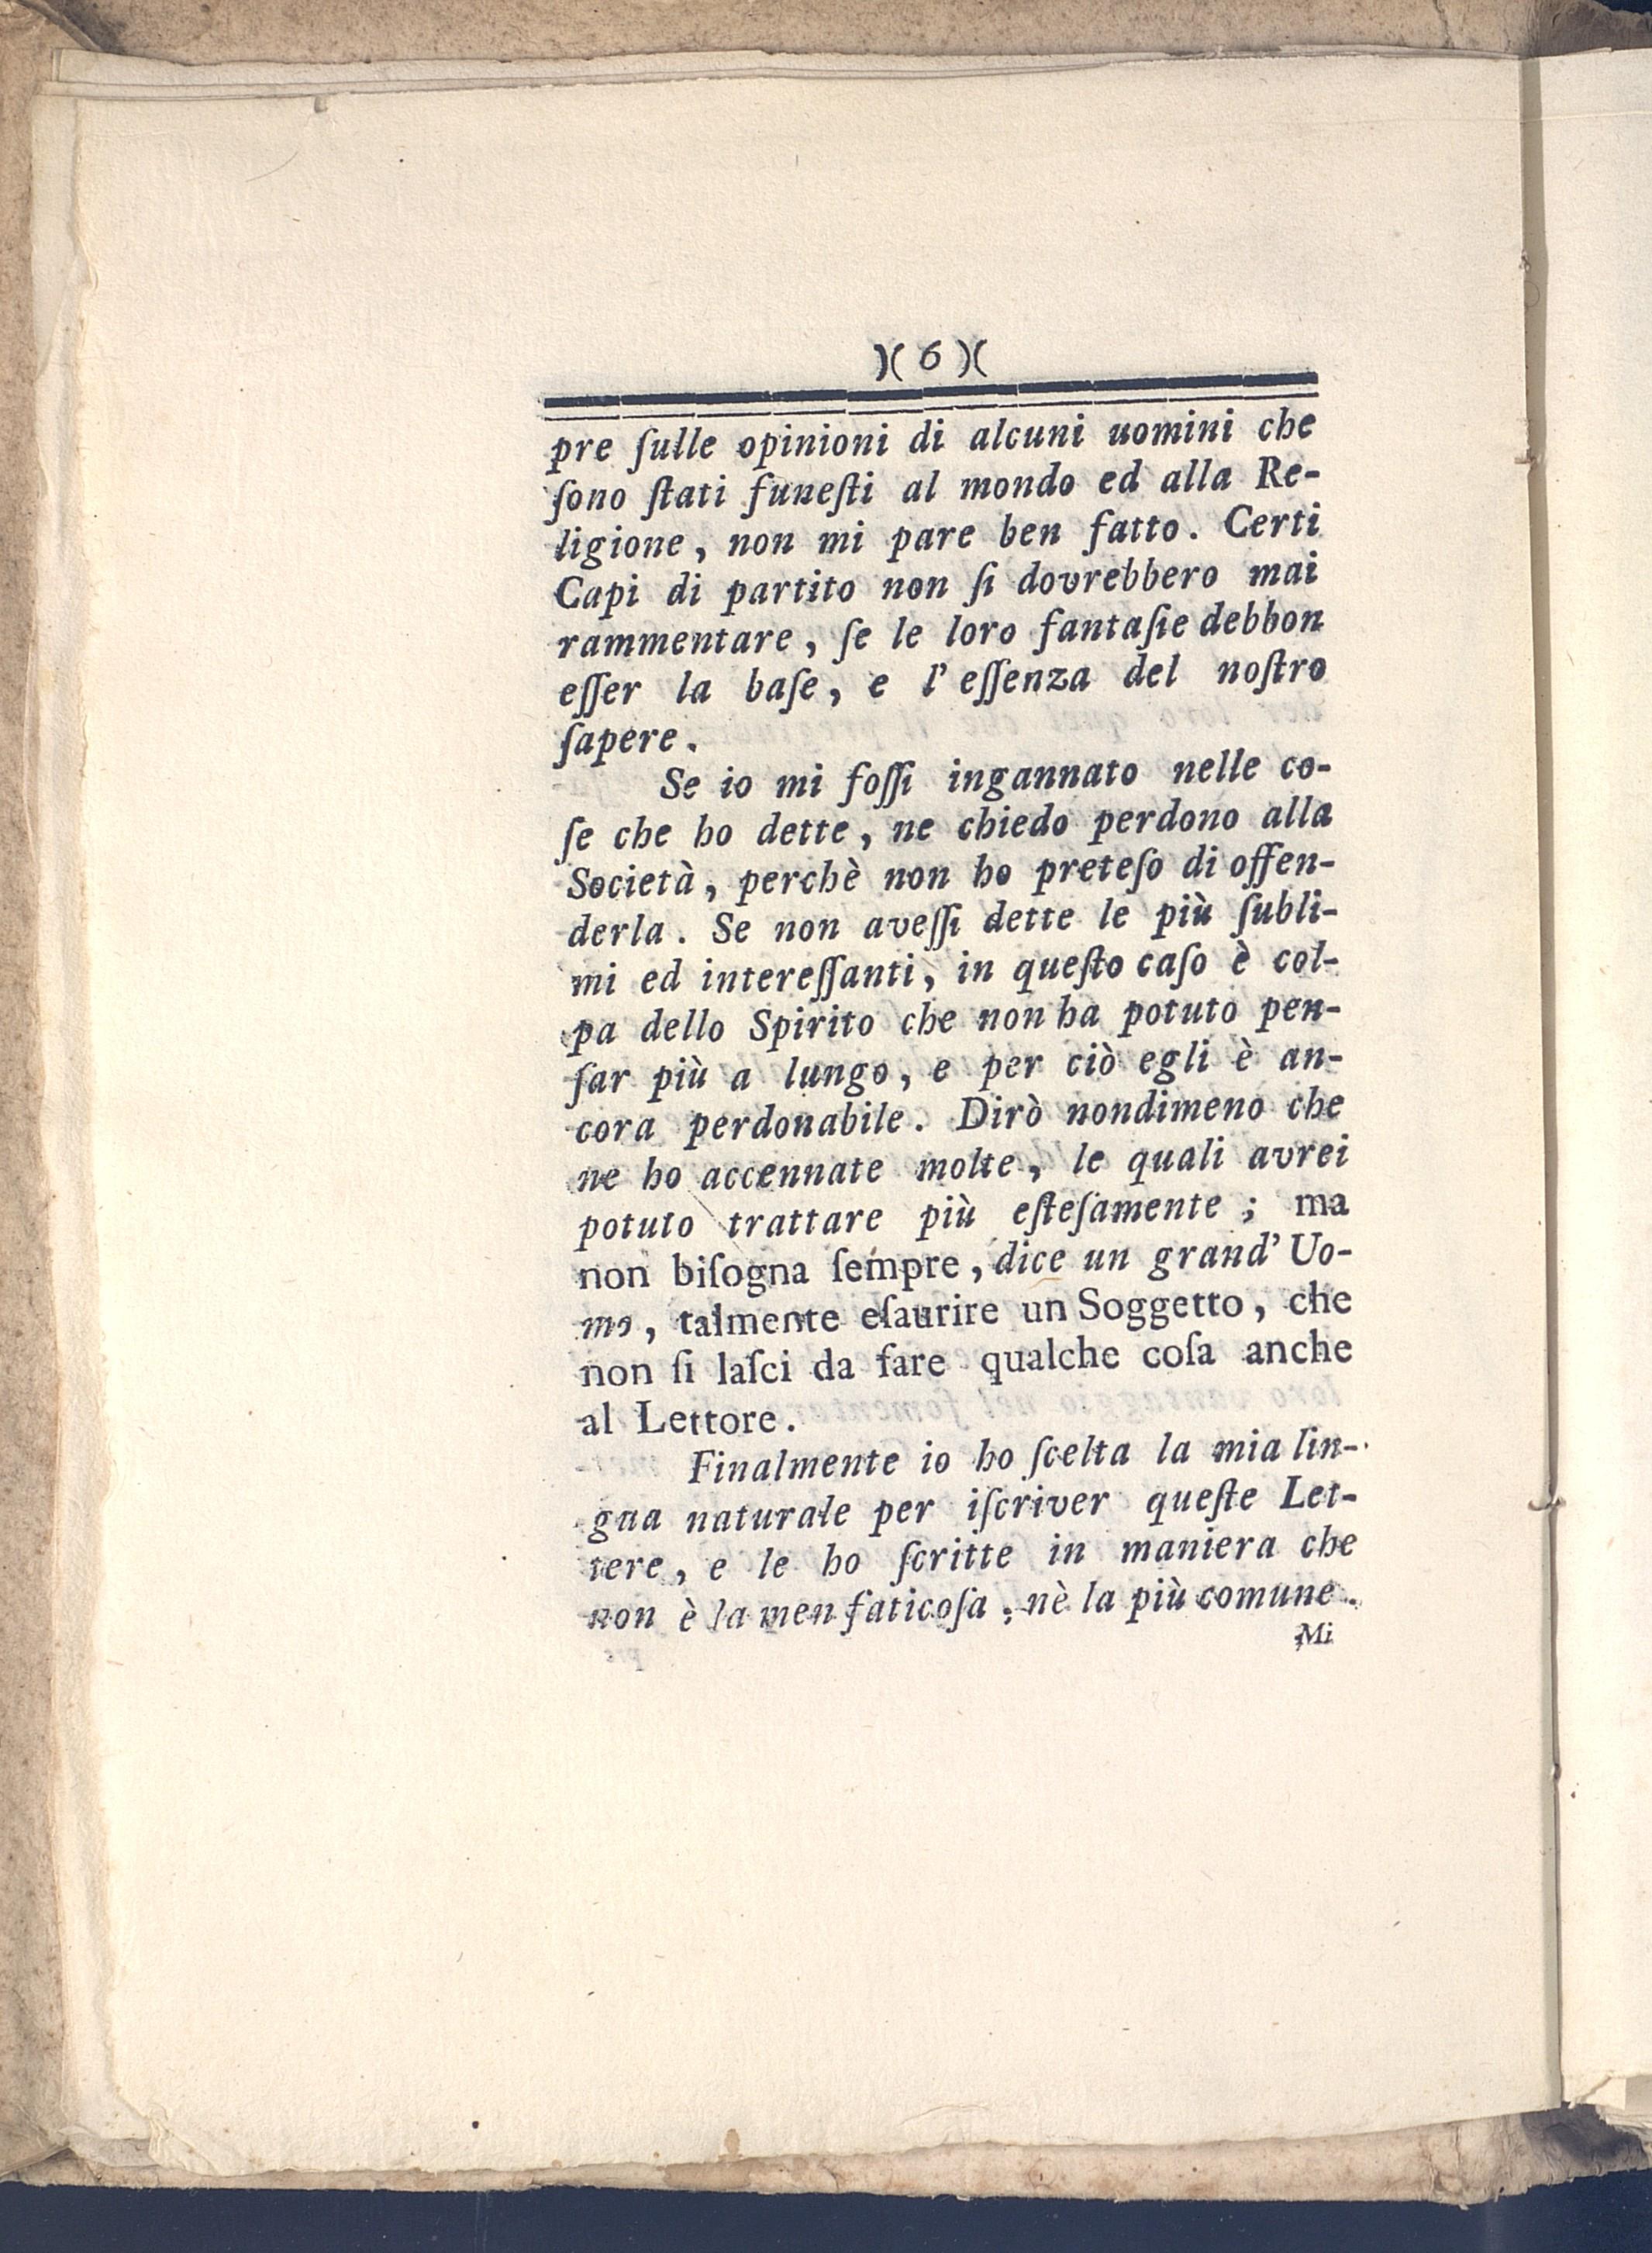 )( 6 )(
pre ſulle opinioni di alcuni uomini che
ſono ſtati funeſti al mondo ed alla Re-
ligione, non mi pare ben fatto. Certi
Capi di partito non ſi dovrebbero mai
rammentare, ſe le loro fantaſie debbon
eſſer la baſe, e l' eſſenza del noſtro
ſapere.
Se io mi foſſi ingannato nelle co-
ſe che ho dette, ne chiedo perdono alla
Società, perchè non ho preteſo di offen-
derla. Se non aveſſi dette le più ſubli-
mi ed intereſſanti, in queſto caſo è col-
pa dello Spirito che non ha potuto pen-
ſar più a lungo, e per ciò egli è an-
cora perdonabile. Dirò nondimeno che
ne ho accennate molte, le quali avrei
potuto trattare più eſteſamente; ma
non biſogna ſempre, dice un grand' Uo-
mo, talmente eſaurire un Soggetto, che
non ſi laſci da fare qualche coſa anche
al Lettore.
Finalmente io ho ſcelta la mia lin-
gua naturale per iſcriver queſte Let-
tere, e le ho ſcritte in maniera che
non è la men faticoſa, nè la più comune.
Mi